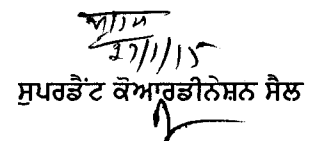 27/1/15
ਸੁਪਰਡੈਂਟ ਕੋਆਰਡੀਨੇਸ਼ਨ ਸੈਲ